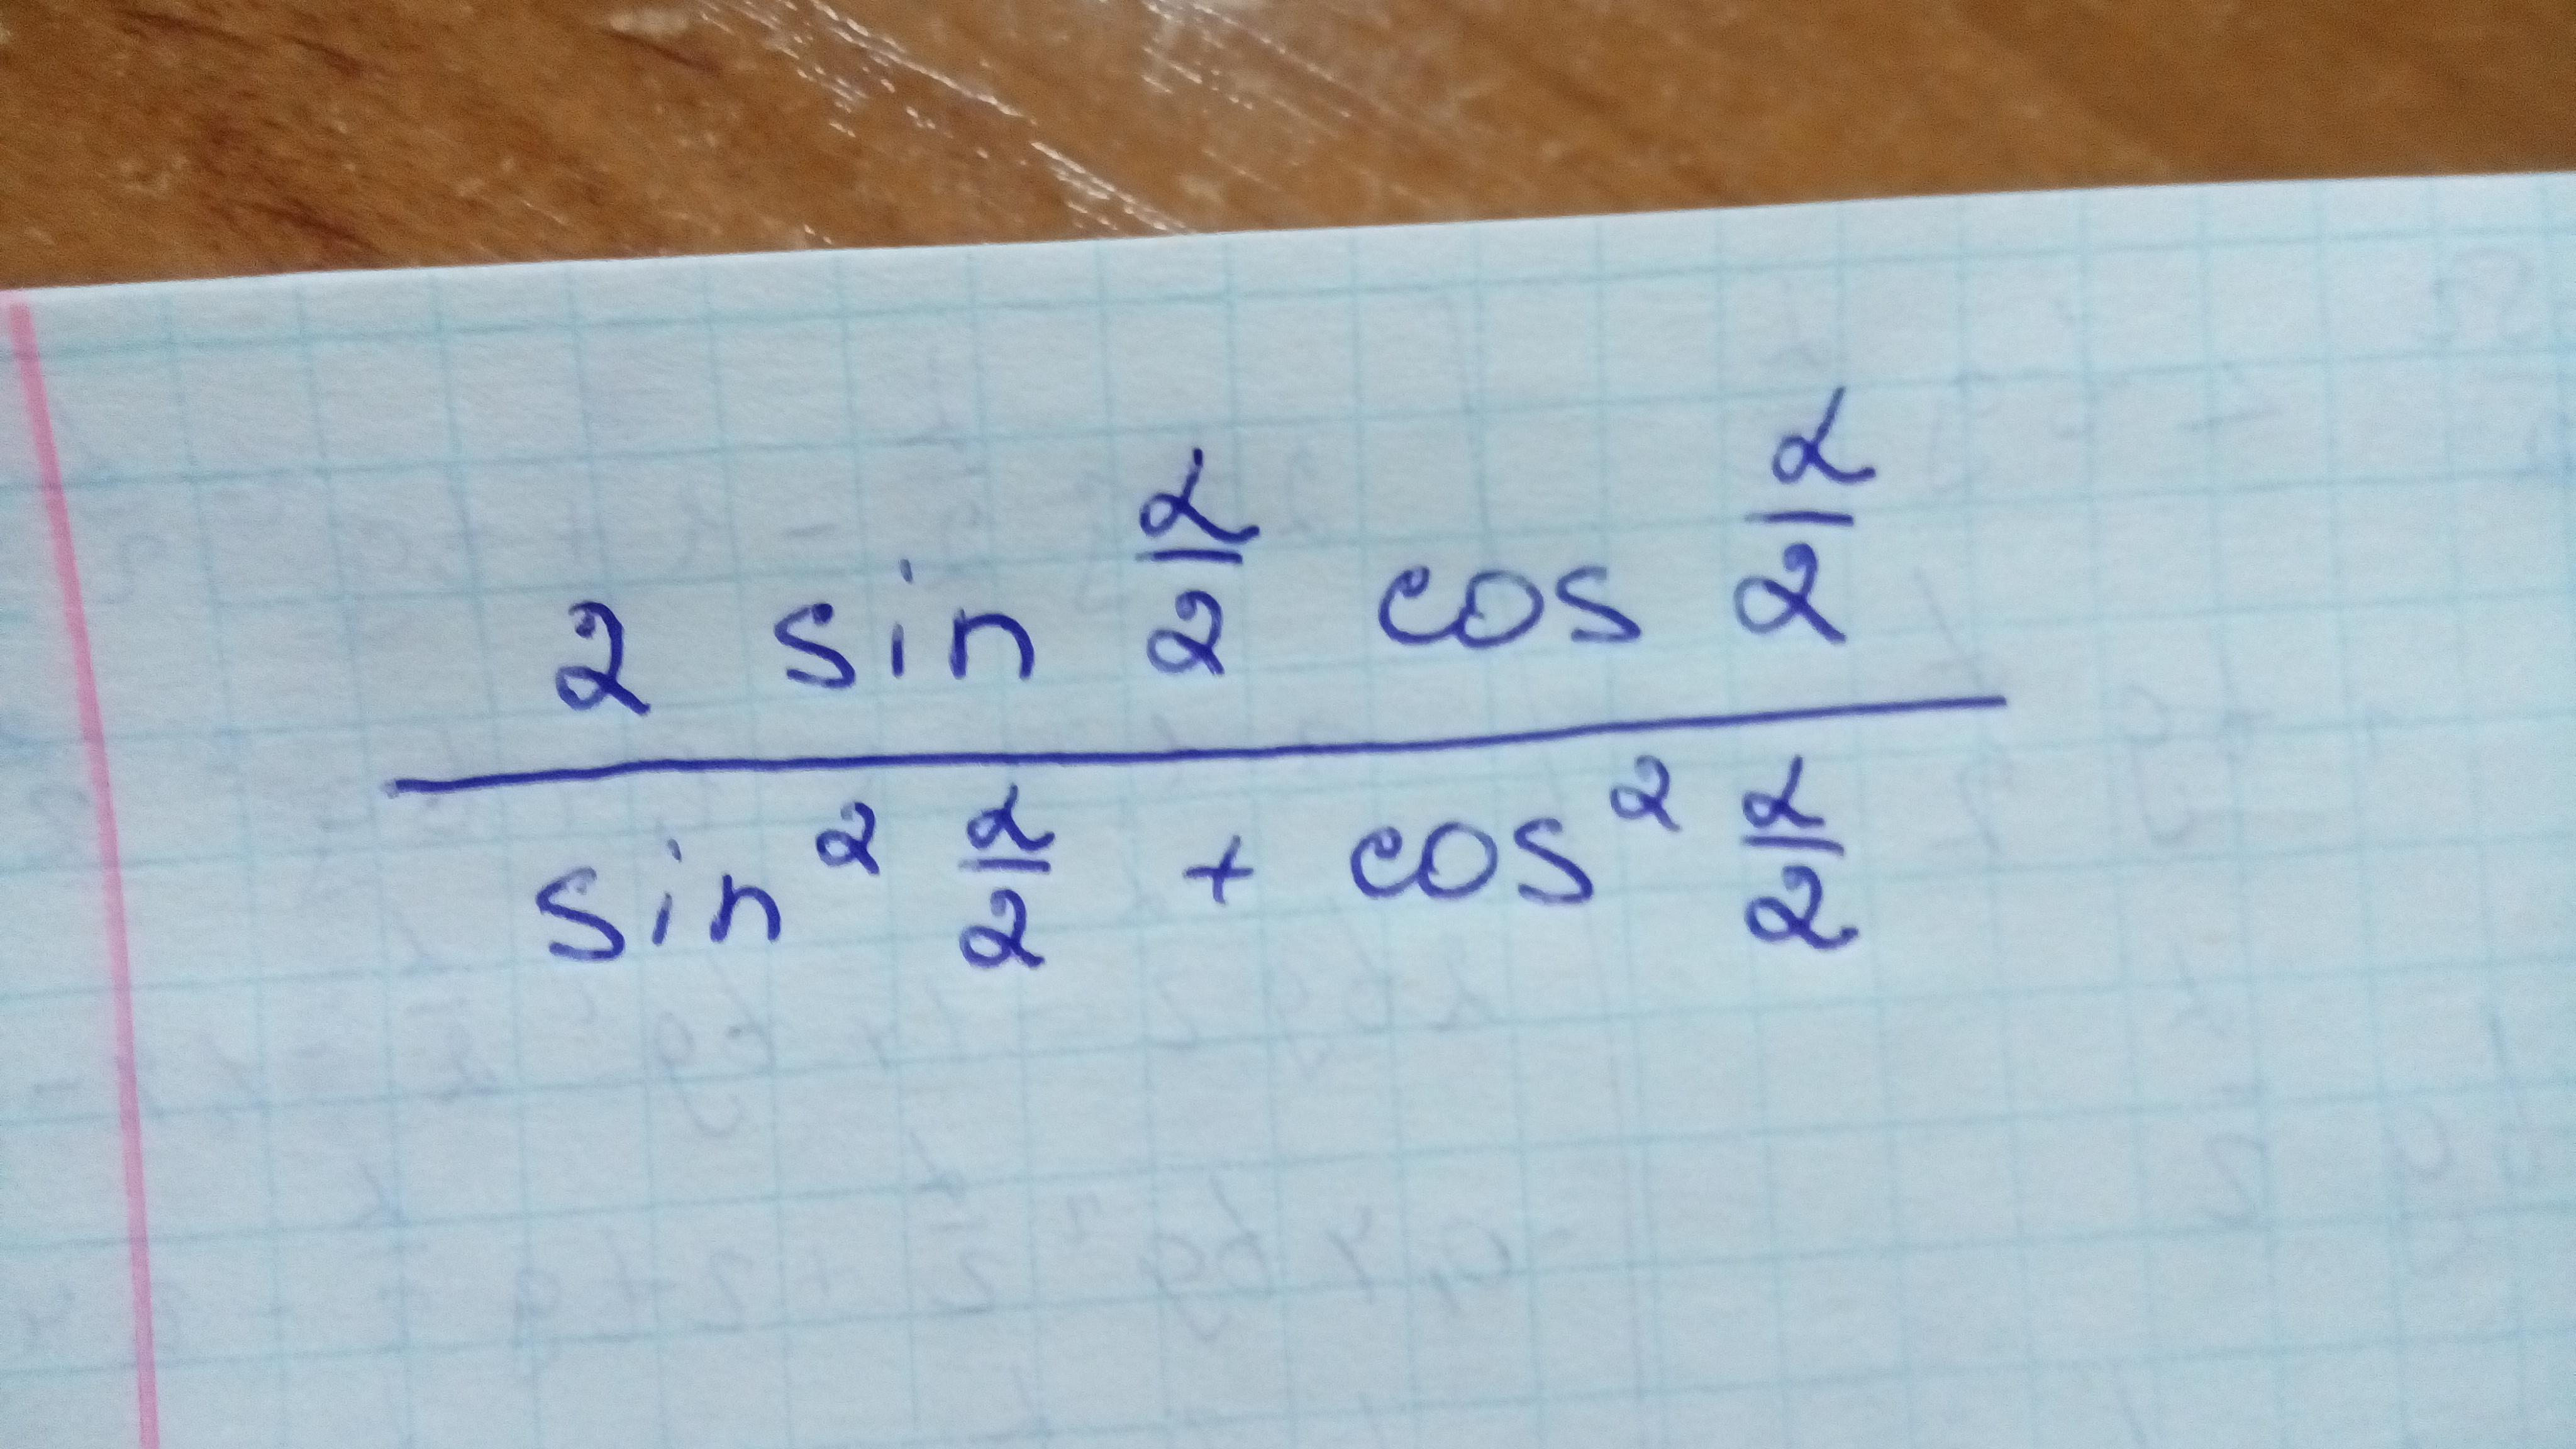 2 sin α/2 cos α/2
sin² α/2 + cos² α/2